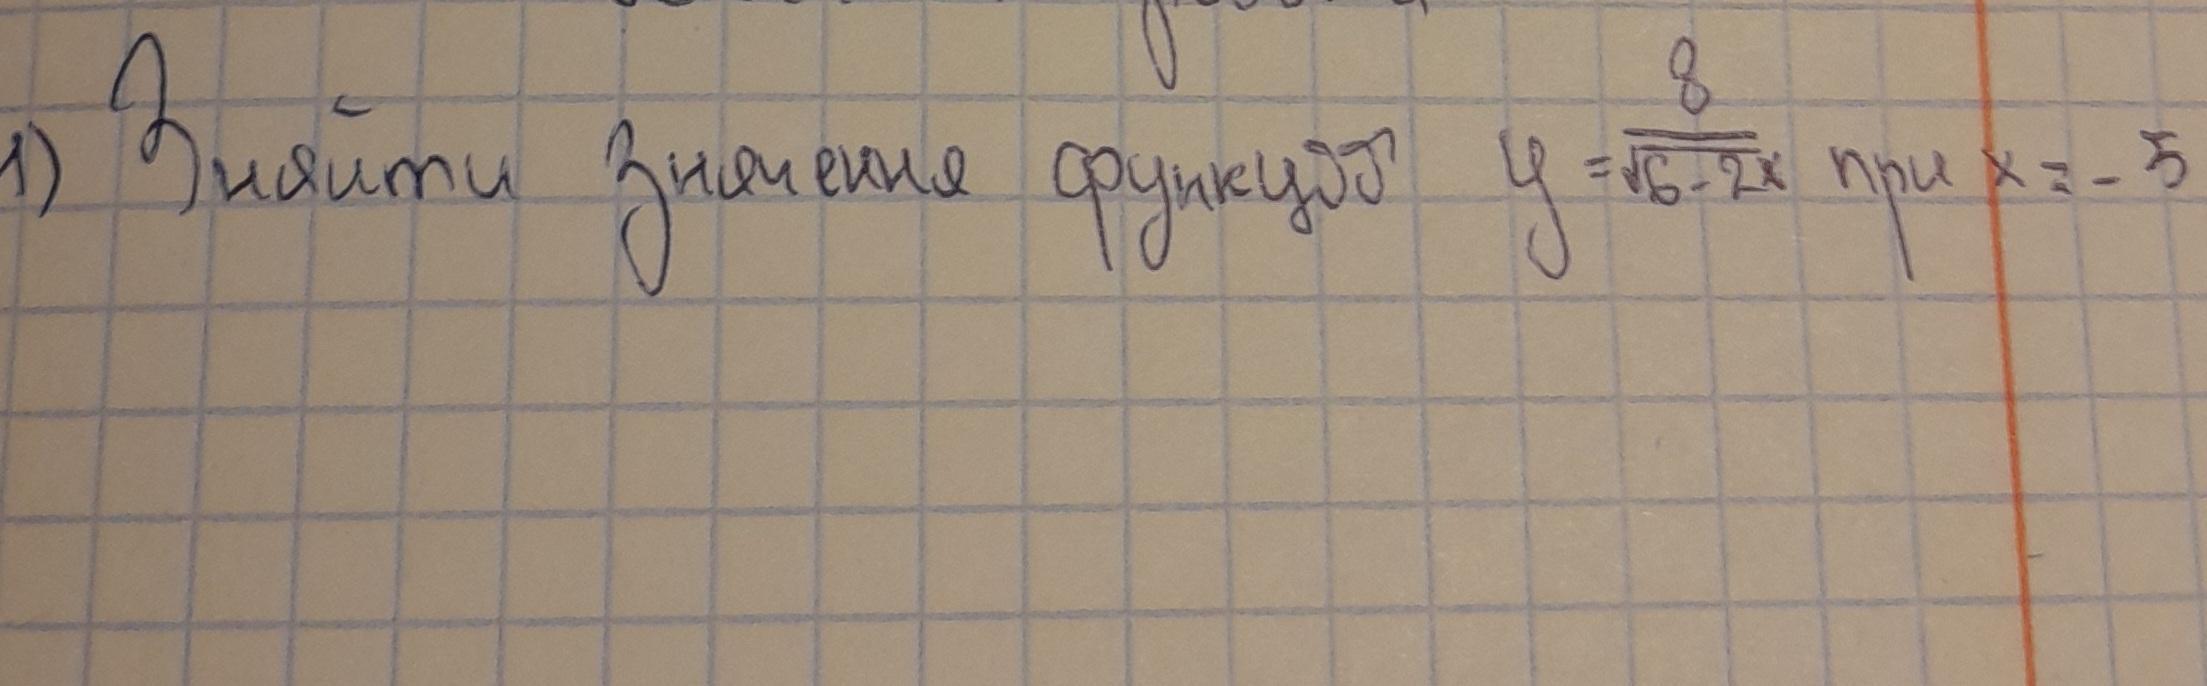 1) Знайти значення функції y = 8/√6-2x при x = -5